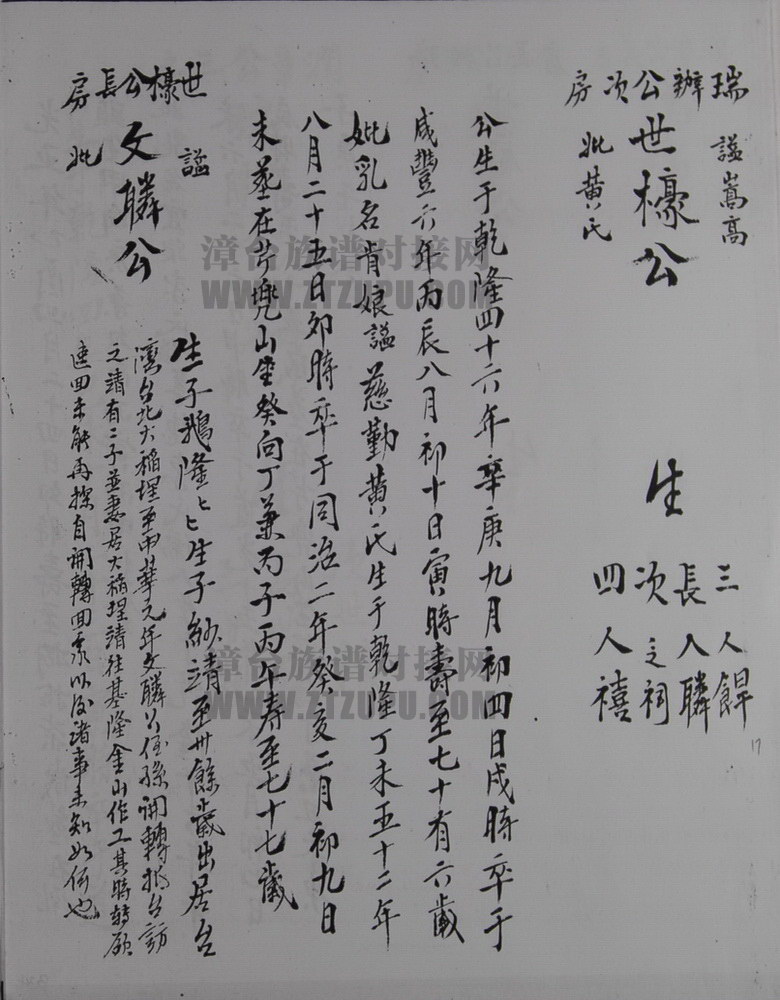 瑞辦公次房
諡嵩高
世檺公
妣黃氏
生
三人錦
長人聯
次之祠
四人禧
公生于乾隆四十六年辛庚九月初四日戌時卒于
咸豐六年丙辰八月初十日寅時壽至七十有六歲
妣乳名肯娘諡慈勤黃氏生于乾隆丁未五十二年
八月二十五日卯時卒于同治二年癸亥二月初九日
未葬在芹兠山坐癸向丁兼丙子丙午寿至七十七歲
世檺公長房
諡
文聯公
妣
生子鵝隆匕匕生子紗靖至卅餘歲出居台
灣台北大稻埕至中華元年文聯公侄孫開轉抵台訪
之靖有二子並妻居大稻埕靖往基隆金山作工其時轉欲
速回未能再探自開轉回家以后諸事未知如何也
17
漳台族谱对接网
WWW.ZTZUPU.COM
漳台族谱对接网
WWW.ZTZUPU.COM